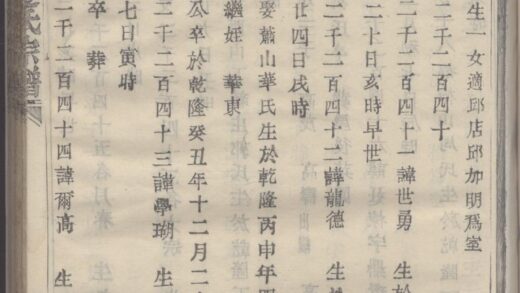 生一女適邱店邱加明爲室
二千二百四十
二千二百四十一諱世勇 生於
二十日亥時早世
二千二百四十二諱龍德 生
廿四日戌時
娶蕭山華氏生於乾隆丙申年
繼姪 華東
公卒於乾隆癸丑年十二月二
二千二百四十三諱學瑚 生
七日寅時
卒 葬
二千二百四十四諱爾高 生
氏宗譜